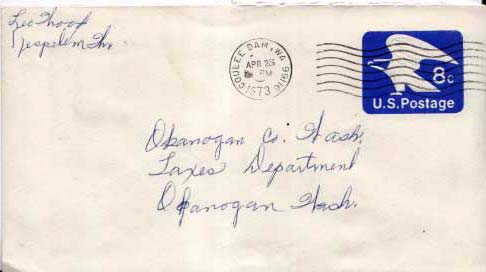 Leo
Nespelem Wn.
COULEE DAM, WA 99116
APR 25
PM
1973
8c
U.S. Postage
Okanogan Co. Wash.
Taxes Department
Okanogan Wash.